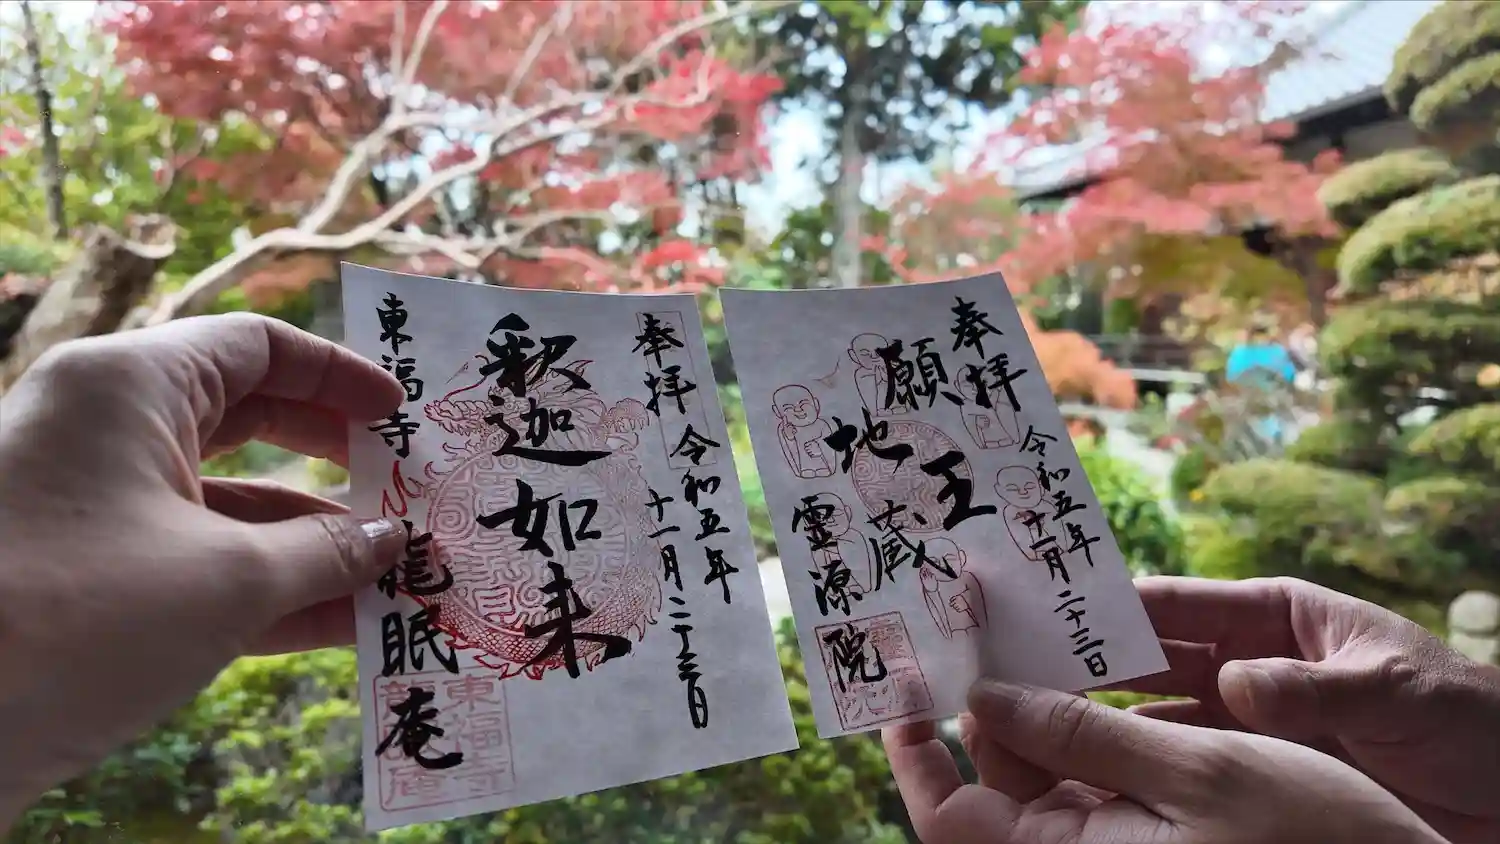 奉拝
令和五年
十一月二十三日
釈迦如来
東福寺
龍眠庵
東福寺
龍眠庵
奉拝
令和五年
十一月二十三日
願王
地蔵
霊源院